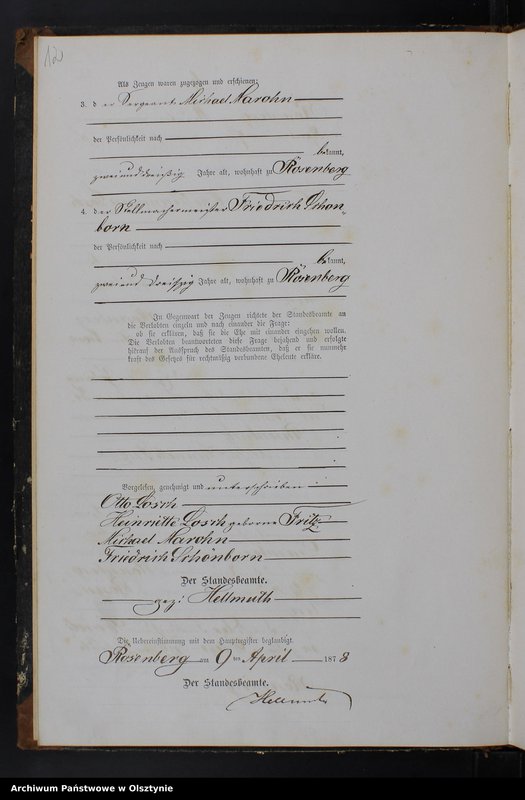 120
Als Zeugen waren zugezogen und erschienen:
3. der Sergeant Michael Marohn
der Persönlichkeit nach
bekannt,
zweiunddreißig Jahre alt, wohnhaft zu Rosenberg
4. der Stellmachermeister Friedrich Schön„
born
der Persönlichkeit nach
bekannt,
zweiund dreißig Jahre alt, wohnhaft zu Rosenberg
In Gegenwart der Zeugen richtete der Standesbeamte an
die Verlobten einzeln und nach einander die Frage:
ob sie erklären, daß sie die Ehe mit einander eingehen wollen.
Die Verlobten beantworteten diese Frage bejahend und erfolgte
hierauf der Ausspruch des Standesbeamten, daß er sie nunmehr
kraft des Gesetzes für rechtmäßig verbundene Eheleute erkläre.
Vorgelesen, genehmigt und unterschrieben
Otto Losch
Heinriette Losch geborne Fritz
Michael Marohn
Friedrich Schönborn
Der Standesbeamte.
gez: Hellmuth
Die Uebereinstimmung mit dem Hauptregister beglaubigt.
Rosenberg am 9 ten April 1878
Der Standesbeamte.
Hellmuth
Archiwum Państwowe w Olsztynie